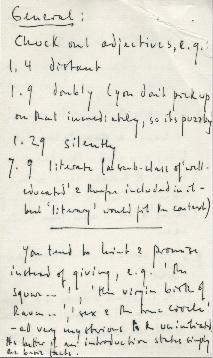 General:
Check out adjectives, e.g.:
1. 4 distant
1. 9 doubly (you don't pick up
on that immediately, so it's puzzling
1. 29 silently
7. 9 literate (a sub-class of 'well-
educated' & therefore included in it -
but 'literary' would fit the context)
You tend to hint & promise
instead of giving, e.g. 'the
'the virgin birth of
Raven...', 'sex & the
- all very mysterious to the uninitiated
the better if an introduction states simply
the basic facts.